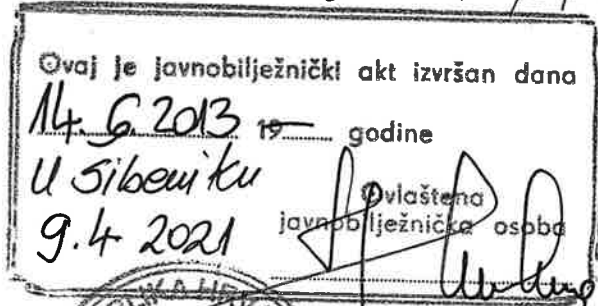 Ovaj je javnobilježnički akt izvršan dana
14. 6. 2013 19 godine
U Sibeniku
9. 4 2021
Ovlaštena
javnobilježnička osoba